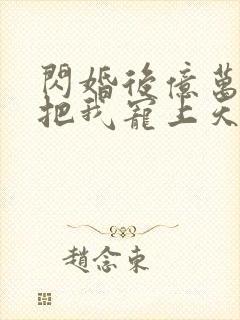 閃婚後億萬
把我寵上天
趙念東